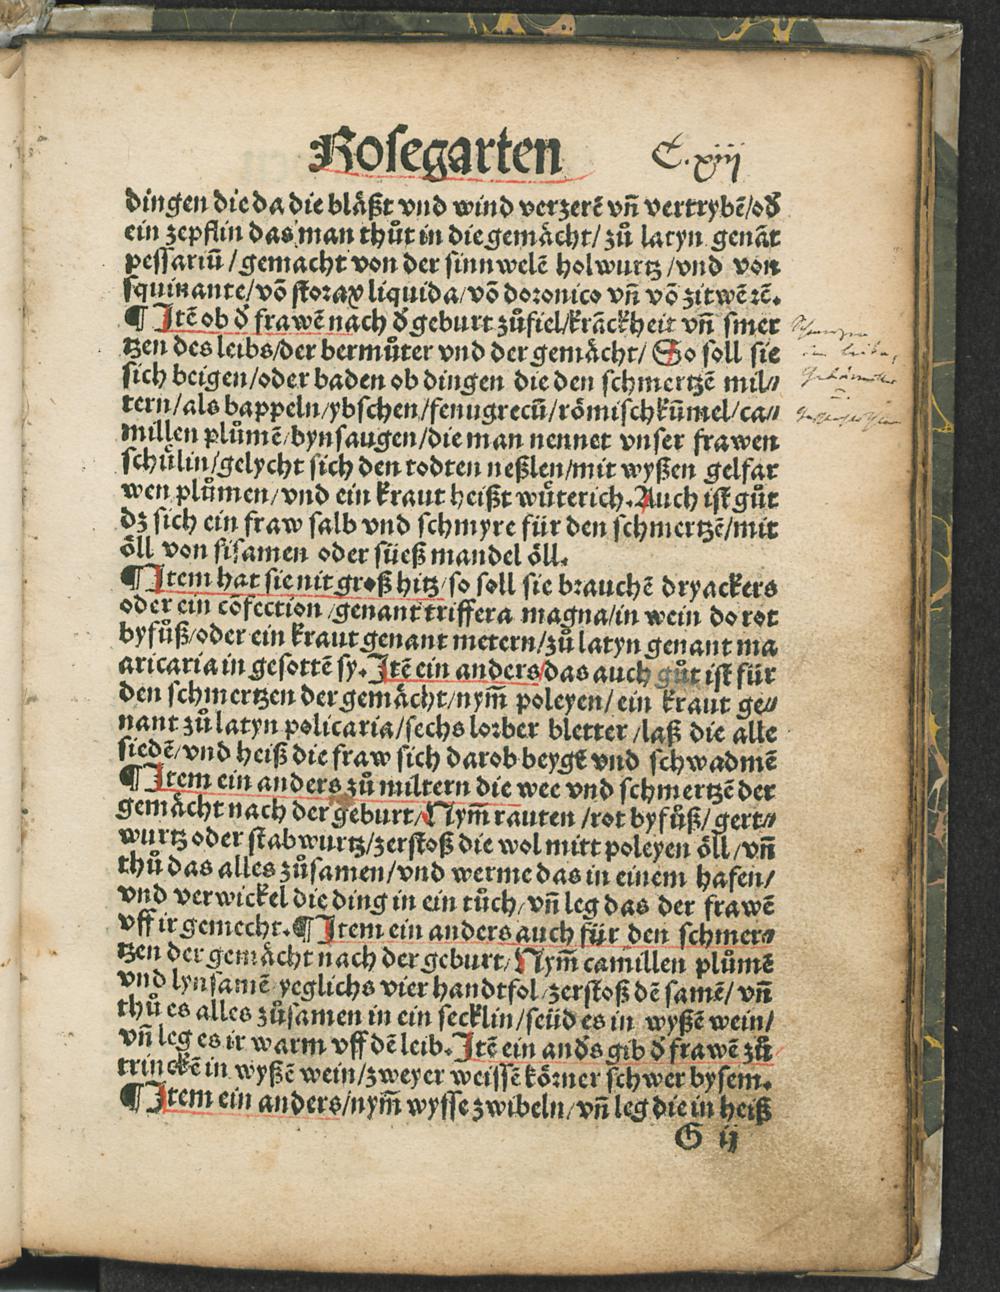 Rosegarten C. xiij
dingen die da die bläßt vnd wind verzerẽ vñ vertrybẽ/od̕
ein zepflin das man thůt in die gemächt/ zů latyn genãt
pessariũ /gemacht von der sinnwelẽ holwurtz /vnd von
squinante/võ storax liquida/võ doronico vñ võ zitwẽ ꝛẽ.
¶ Itẽ ob d̕ frawẽ nach d̕ geburt zůfiel/krãckheit vñ smer
tzen des leibs/der bermůter vnd der gemächt/ So soll sie
sich beigen/oder baden ob dingen die den schmertzẽ mil⸗
tern/als bappeln/ybschen/fenugrecũ/römischkũmel/ca⸗
millen plůmẽ/bynsaugen/die man nennet vnser frawen
schůlin/gelycht sich den todten neßlen/mit wyßen gelfar
wen plůmen/vnd ein kraut heißt wüterich. Auch ist gůt
dz sich ein fraw salb vnd schmyre für den schmertzẽ/mit
öll von sisamen oder süeß mandel öll.
¶ Item hat sie nit groß hitz/so soll sie brauchẽ dryackers
oder ein cõfection /genant triffera magna/in wein do rot
byfůß/oder ein kraut genant metern/zů latyn genant ma
aricaria in gesottẽ sy. Itẽ ein anders/das auch gůt ist für
den schmertzen der gemächt/nym̃ poleyen/ ein kraut ge⸗
nant zů latyn policaria/sechs lorber bletter /laß die alle
siedẽ/vnd heiß die fraw sich darob beygẽ vnd schwadmẽ
¶ Item ein anders zů miltern die wee vnd schmertzẽ der
gemächt nach der geburt/ Nym̃ rauten /rot byfůß/ gert⸗
wurtz oder stabwurtz/zerstoß die wol mitt poleyen öll/vñ
thů das alles zůsamen/vnd werme das in einem hafen/
vnd verwickel die ding in ein tůch/vñ leg das der frawẽ
vff ir gemecht. ¶ Item ein anders auch für den schmer⸗
tzen der gemächt nach der geburt/ Nym̃ camillen plůmẽ
vnd lynsamẽ yeglichs vier handtfol/zerstoß dẽ samẽ/ vñ
thů es alles zůsamen in ein secklin/seüd es in wyßẽ wein/
vñ leg es ir warm vff dẽ leib. Itẽ ein and̕s gib d̕ frawẽ zů
trinckẽ in wyßẽ wein/zweyer weissẽ körner schwer bysem.
¶ Item ein anders/nym̃ wysse zwibeln/vñ leg die in heiß
G ij